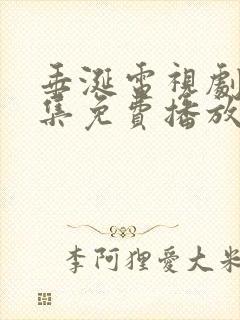 垂涎電視劇
集免費播放
李阿狸愛大米